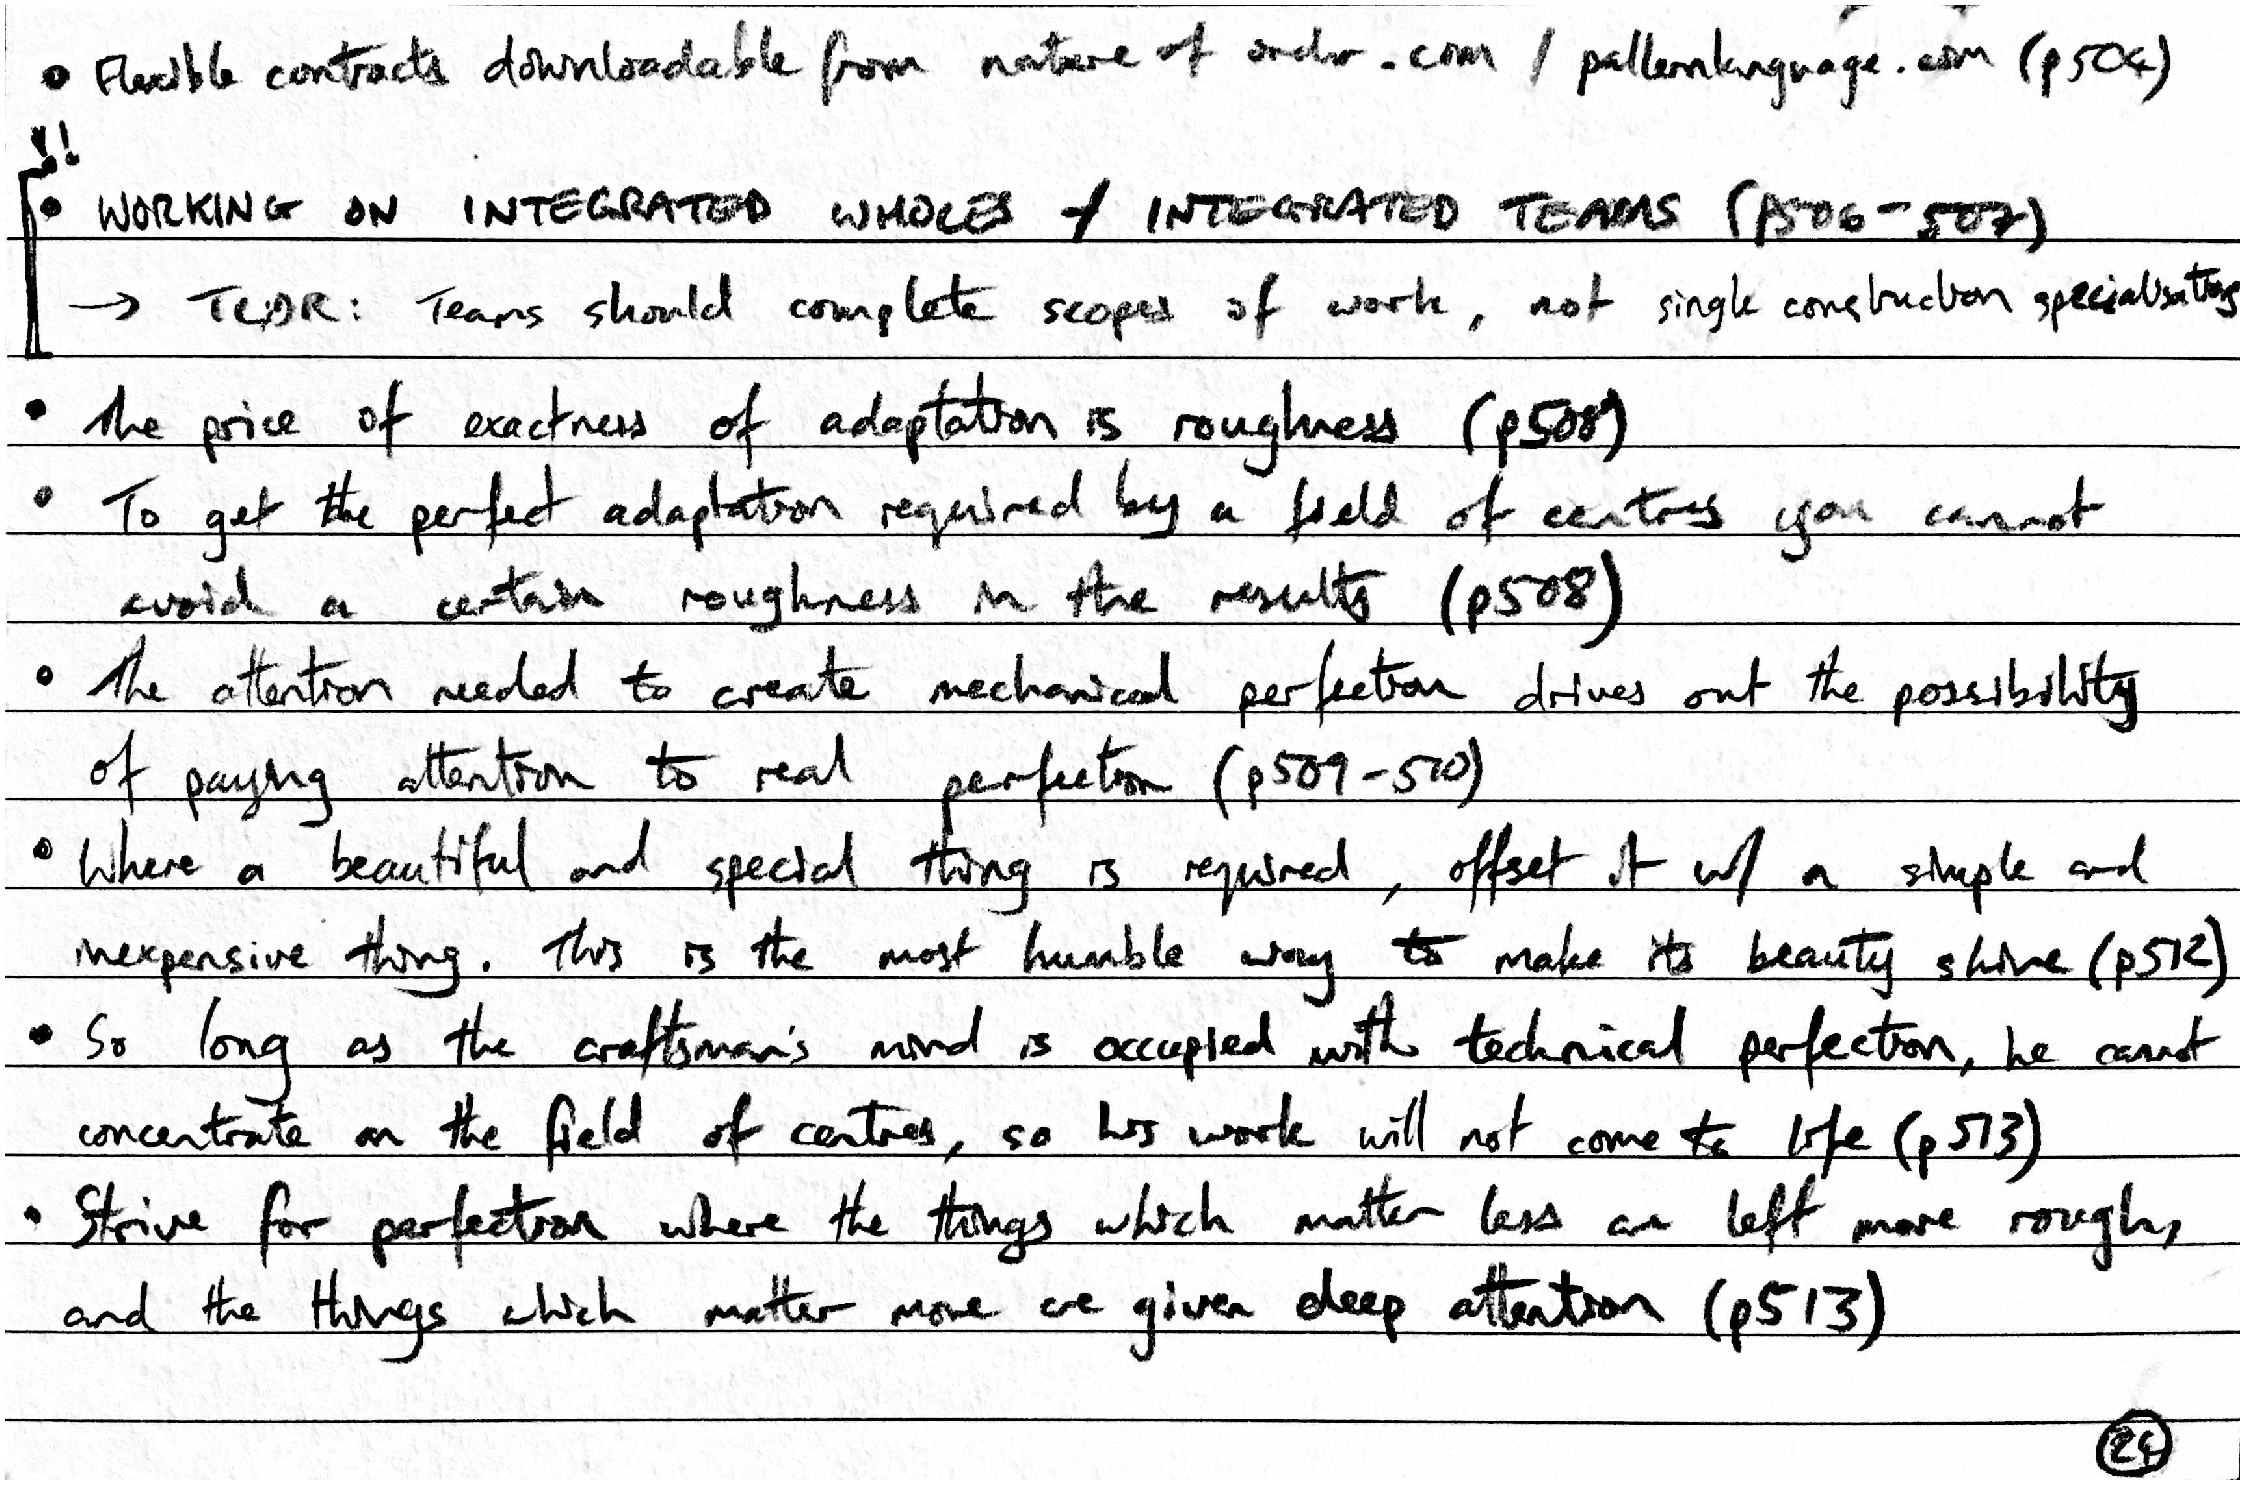 • Flexible contracts downloadable from nature of order.com / patternlanguage.com (p504)
!!
• WORKING ON INTEGRATED WHOLES / INTEGRATED TEAMS (p506-507)
→ TL;DR: Teams should complete scopes of work, not single construction specialisations
• The price of exactness of adaptation is roughness (p508)
• To get the perfect adaptation required by a field of centres you cannot
avoid a certain roughness in the results (p508)
• The attention needed to create mechanical perfection drives out the possibility
of paying attention to real perfection (p509-510)
• Where a beautiful and special thing is required, offset it w/ a simple and
inexpensive thing. This is the most humble way to make its beauty shine (p512)
• So long as the craftsman's mind is occupied with technical perfection, he cannot
concentrate on the field of centres, so his work will not come to life (p513)
• Strive for perfection where the things which matter less are left more rough,
and the things which matter more are given deep attention (p513)
24